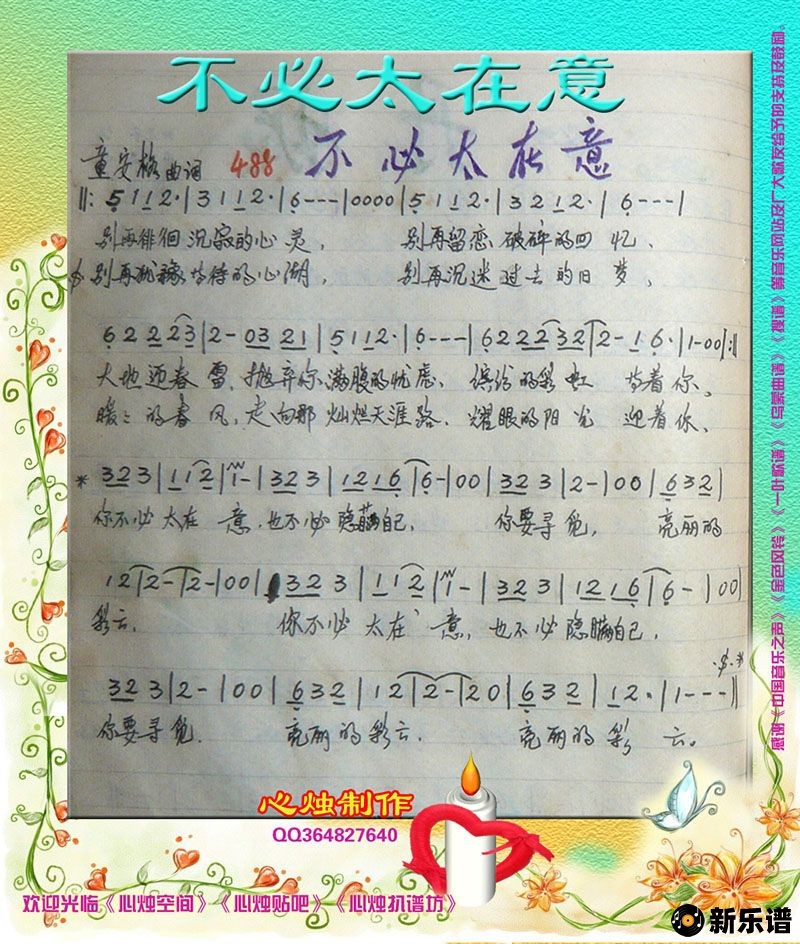 不必太在意
童安格曲词 488 不必太在意
‖: 5 1 1 2· | 3 1 1 2· | 6 - - - | 0 0 0 0 | 5 1 1 2· | 3 2 1 2· | 6 - - - |
别再徘徊沉寂的心灵, 别再留恋破碎的回忆、
别再 的心湖, 别再沉迷过去的日梦,
6 2 2 2 3 | 2 - 0 3 2 1 | 5 1 1 2· | 6 - - - | 6 2 2 2 3 2 | 2 - 1 6· | 1 - 0 0 :‖
大地迎春雷,抛弃你满腹的忧虑, 缤纷的彩虹 着你、
暖暖的春风,走向那灿烂天涯路. 耀眼的阳光 迎着你、
* 3 2 3 | 1 1 2 | 1 - | 3 2 3 | 1 2 1 6 | 6 - | 0 0 | 3 2 3 | 2 - | 0 0 | 6 3 2 |
你不必太在意,也不必隐瞒自己, 你要寻觅, 亮丽的
1 2 | 2 - | 2 - | 0 0 | 3 2 3 | 1 1 2 | 1 - | 3 2 3 | 1 2 1 6 | 6 - | 0 0 |
彩云. 你不必太在意,也不必隐瞒自己,
3 2 3 | 2 - | 0 0 | 6 3 2 | 1 2 | 2 - | 2 0 | 6 3 2 | 1 2· | 1 - - - ‖
你要寻觅. 亮丽的彩云. 亮丽的彩云。
心烛制作
QQ364827640
欢迎光临《心烛空间》《心烛贴吧》《心烛扒谱坊》
感谢《中国音乐之声》《金色风铃》《一叶歌谱》《乌蒙曲谱》《搜谱》等音乐网站及广大歌友给予的支持及鼓励。
新乐谱